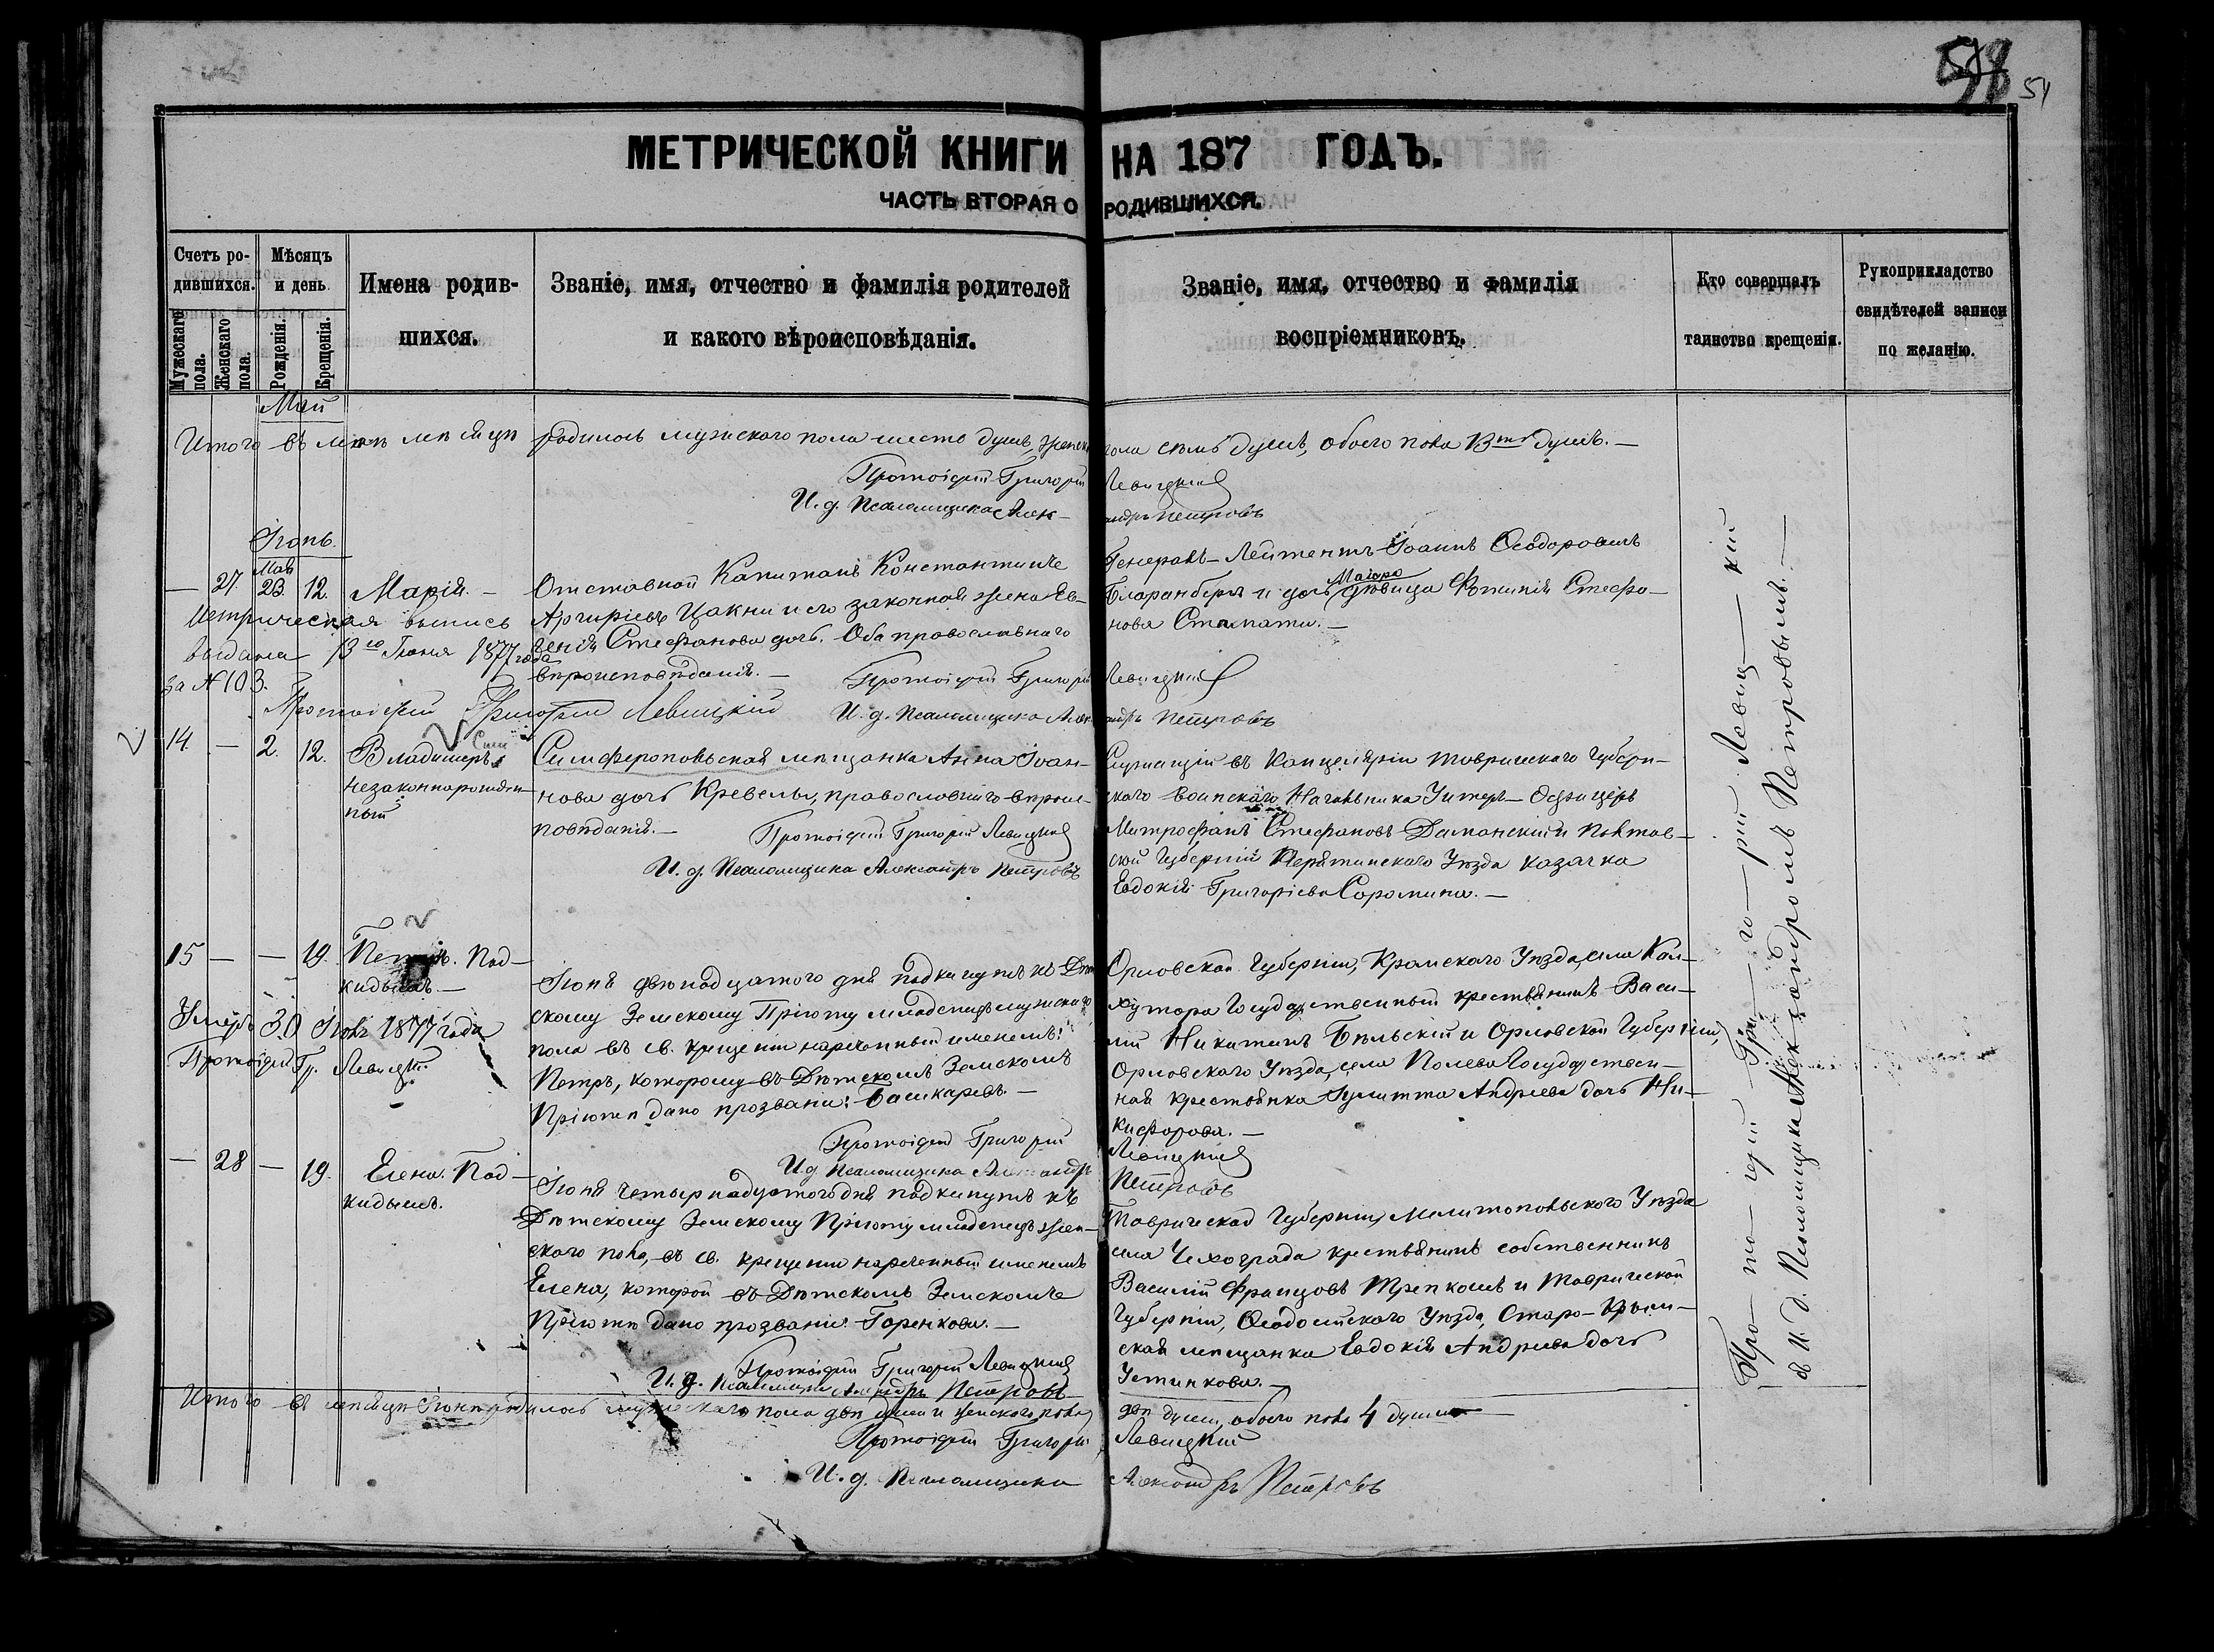 54
МЕТРИЧЕСКОЙ КНИГИ НА 187 ГОДЪ.
ЧАСТЬ ВТОРАЯ О РОДИВШИХСЯ.
Счетъ ро-
дившихся.
Мужескаго пола.
Женскаго пола.
Мѣсяцъ
и день
Рожденія.
Крещенія.
Имена родив-
шихся.
Званіе, имя, отчество и фамилія родителей
и какого вѣроисповѣданія.
Званіе, имя, отчество и фамилія
воспріемниковъ.
Кто совершалъ
таинство крещенія.
Рукоприкладство
свидѣтелей записи
по желанію.
Май
Итого въ маѣ мѣсяцѣ родилось мужескаго пола шесть душъ, женск пола семь душъ, обоего пола 13ть душъ. —
Протоіерей Григорій Левицкій
И. д. Псаломщика Александръ Петровъ
Іюнь.
Мая
— 27 23. 12. Марія. —
Отставной Капитанъ Константинъ
Аргирьевъ Цакни и его законная жена Ев-
генія Стефанова дочь. Оба православнаго
вѣроисповѣданія. —
Генералъ-Лейтентъ Іоаннъ Ѳеодоровичъ
Бларамбергъ и дочь Маіора дѣвица Фотинія Стефа-
нова Стамати. —
Метрическая выпись
выдана 13го Іюня 1877 года
за № 103.
Протоіерей Григорій Левицкій
Протоіерей Григорій Левицкій
И. д. Псаломщика Александръ Петровъ
14 — 2. 12. Владимеръ
незаконнорожден-
ный
Симферопольская мѣщанка Анна Іоан-
нова дочь Кревель, православнаго вѣроис-
повѣданія. —
Протоіерей Григорій Левицкій
И. д. Псаломщика Александръ Петровъ
Служащій въ Канцеляріи Таврическаго Губерн-
скаго Воинскаго Начальника Унтеръ-Офицеръ
Митрофанъ Стефановъ Даманскій и Полтав-
ской Губерніи Пирятинскаго Уѣзда казачка
Евдокія Григоріева Соромина. —
15 — — 19. Петръ. Под-
кидышъ —
Умеръ 30 Іюня 1877 года
Протоіерей Гр. Левицкій
Іюня двѣнадцатого дня подкинутъ къ Дѣт
скому Земскому Пріюту младенецъ мужескаго
пола въ св. крещеніи нареченный именемъ:
Петръ, которому въ Дѣтскомъ Земскомъ
Пріютѣ дано прозваніе: Башкаревъ. —
Протоіерей Григорій Левицкій
И. д. Псаломщика Александръ Петровъ
Орловской Губерніи, Кромскаго Уѣзда, села Кол-
хутора Государственный крестьянинъ Васи-
лій Никитинъ Бѣльскій и Орловской Губерніи,
Орловскаго Уѣзда, села Полева Государствен-
ная крестьянка Іулитта Андреева дочь Ни-
кифорова. —
— 28 — 19. Елена. Под-
кидышъ.
Іюня четырнадцатого дня подкинутъ къ
Дѣтскому Земскому Пріюту младенецъ жен-
скаго пола, въ св. крещеніи нареченный именемъ
Елена, которой въ Дѣтскомъ Земскомъ
Пріютѣ дано прозваніе: Горенкова. —
Протоіерей Григорій Левицкій
И. д. Псаломщика Александръ Петровъ
Таврической Губерніи, Мелитопольскаго Уѣзда
села Чехограда крестьянинъ собственникъ
Василій Францовъ Трепкошъ и Таврической
Губерніи, Ѳеодосійскаго Уѣзда, Старо-Крым-
ская мѣщанка Евдокія Андреева дочь
Устинкова. —
Итого въ мѣсяцѣ Іюнѣ родилось мужескаго пола двѣ души и женскаго пола двѣ души, обоего пола 4 души
Протоіерей Григорій Левицкій
И. д. Псаломщика Александръ Петровъ
Про-то-іерей Гри-го-рій Левиц-кій
съ И. д. Псаломщика Александромъ Петровымъ. —